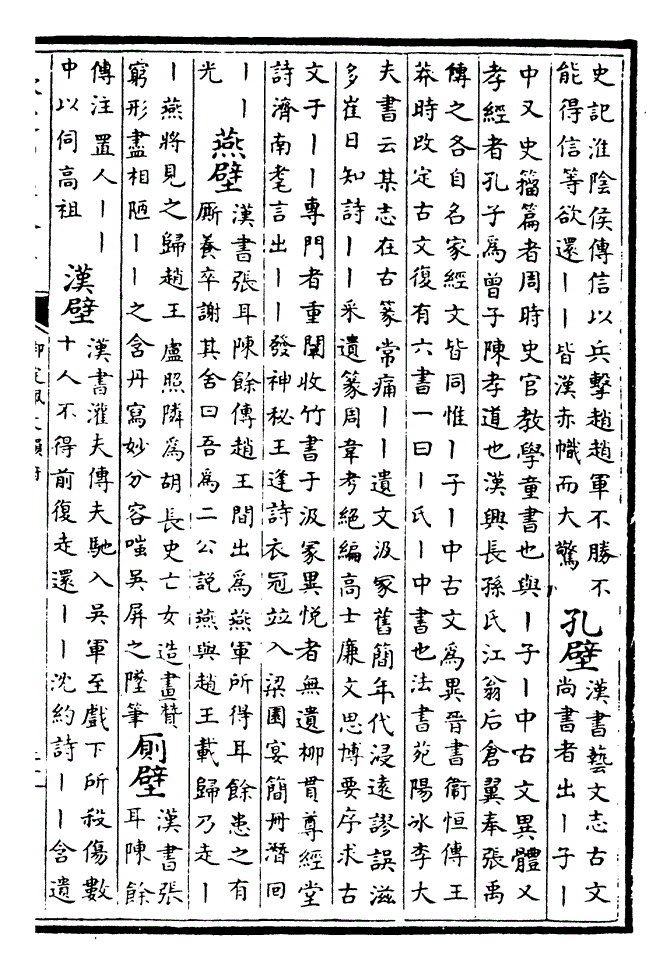 史記淮陰侯傳信以兵擊趙趙軍不勝不
能得信等欲還丨丨皆漢赤幟而大驚
孔壁
漢書藝文志古文
尚書者出丨子丨
中又史籀篇者周時史官教學童書也與丨子丨中古文異體又
孝經者孔子爲曾子陳孝道也漢興長孫氏江翁后倉翼奉張禹
傳之各自名家經文皆同惟丨子丨中古文爲異晉書衞恒傳王
莽時改定古文復有六書一曰丨氏丨中書也法書苑陽冰李大
夫書云某志在古篆常痛丨丨遺文汲冢舊簡年代浸遠謬誤滋
多崔日知詩丨丨采遺篆周韋考絕編高士廉文思博要序求古
文于丨丨專門者重闡收竹書于汲冢異悅者無遺柳貫尊經堂
詩濟南耄言出丨丨發神秘王逢詩衣冠竝入梁園宴簡册潛回
丨丨
光
燕壁
漢書張耳陳餘傳趙王間出爲燕軍所得耳餘患之有
厮養卒謝其舍曰吾爲二公說燕與趙王載歸乃走丨
丨燕將見之歸趙王盧照隣爲胡長史亡女造畫贊
窮形盡相陋丨丨之含丹寫妙分容嗤吳屏之墮筆
廁壁
漢書張
耳陳餘
傳注置人丨丨
中以伺高祖
漢壁
漢書灌夫傳夫馳入吳軍至戲下所殺傷數
十人不得前復走還丨丨沈約詩丨丨含遺